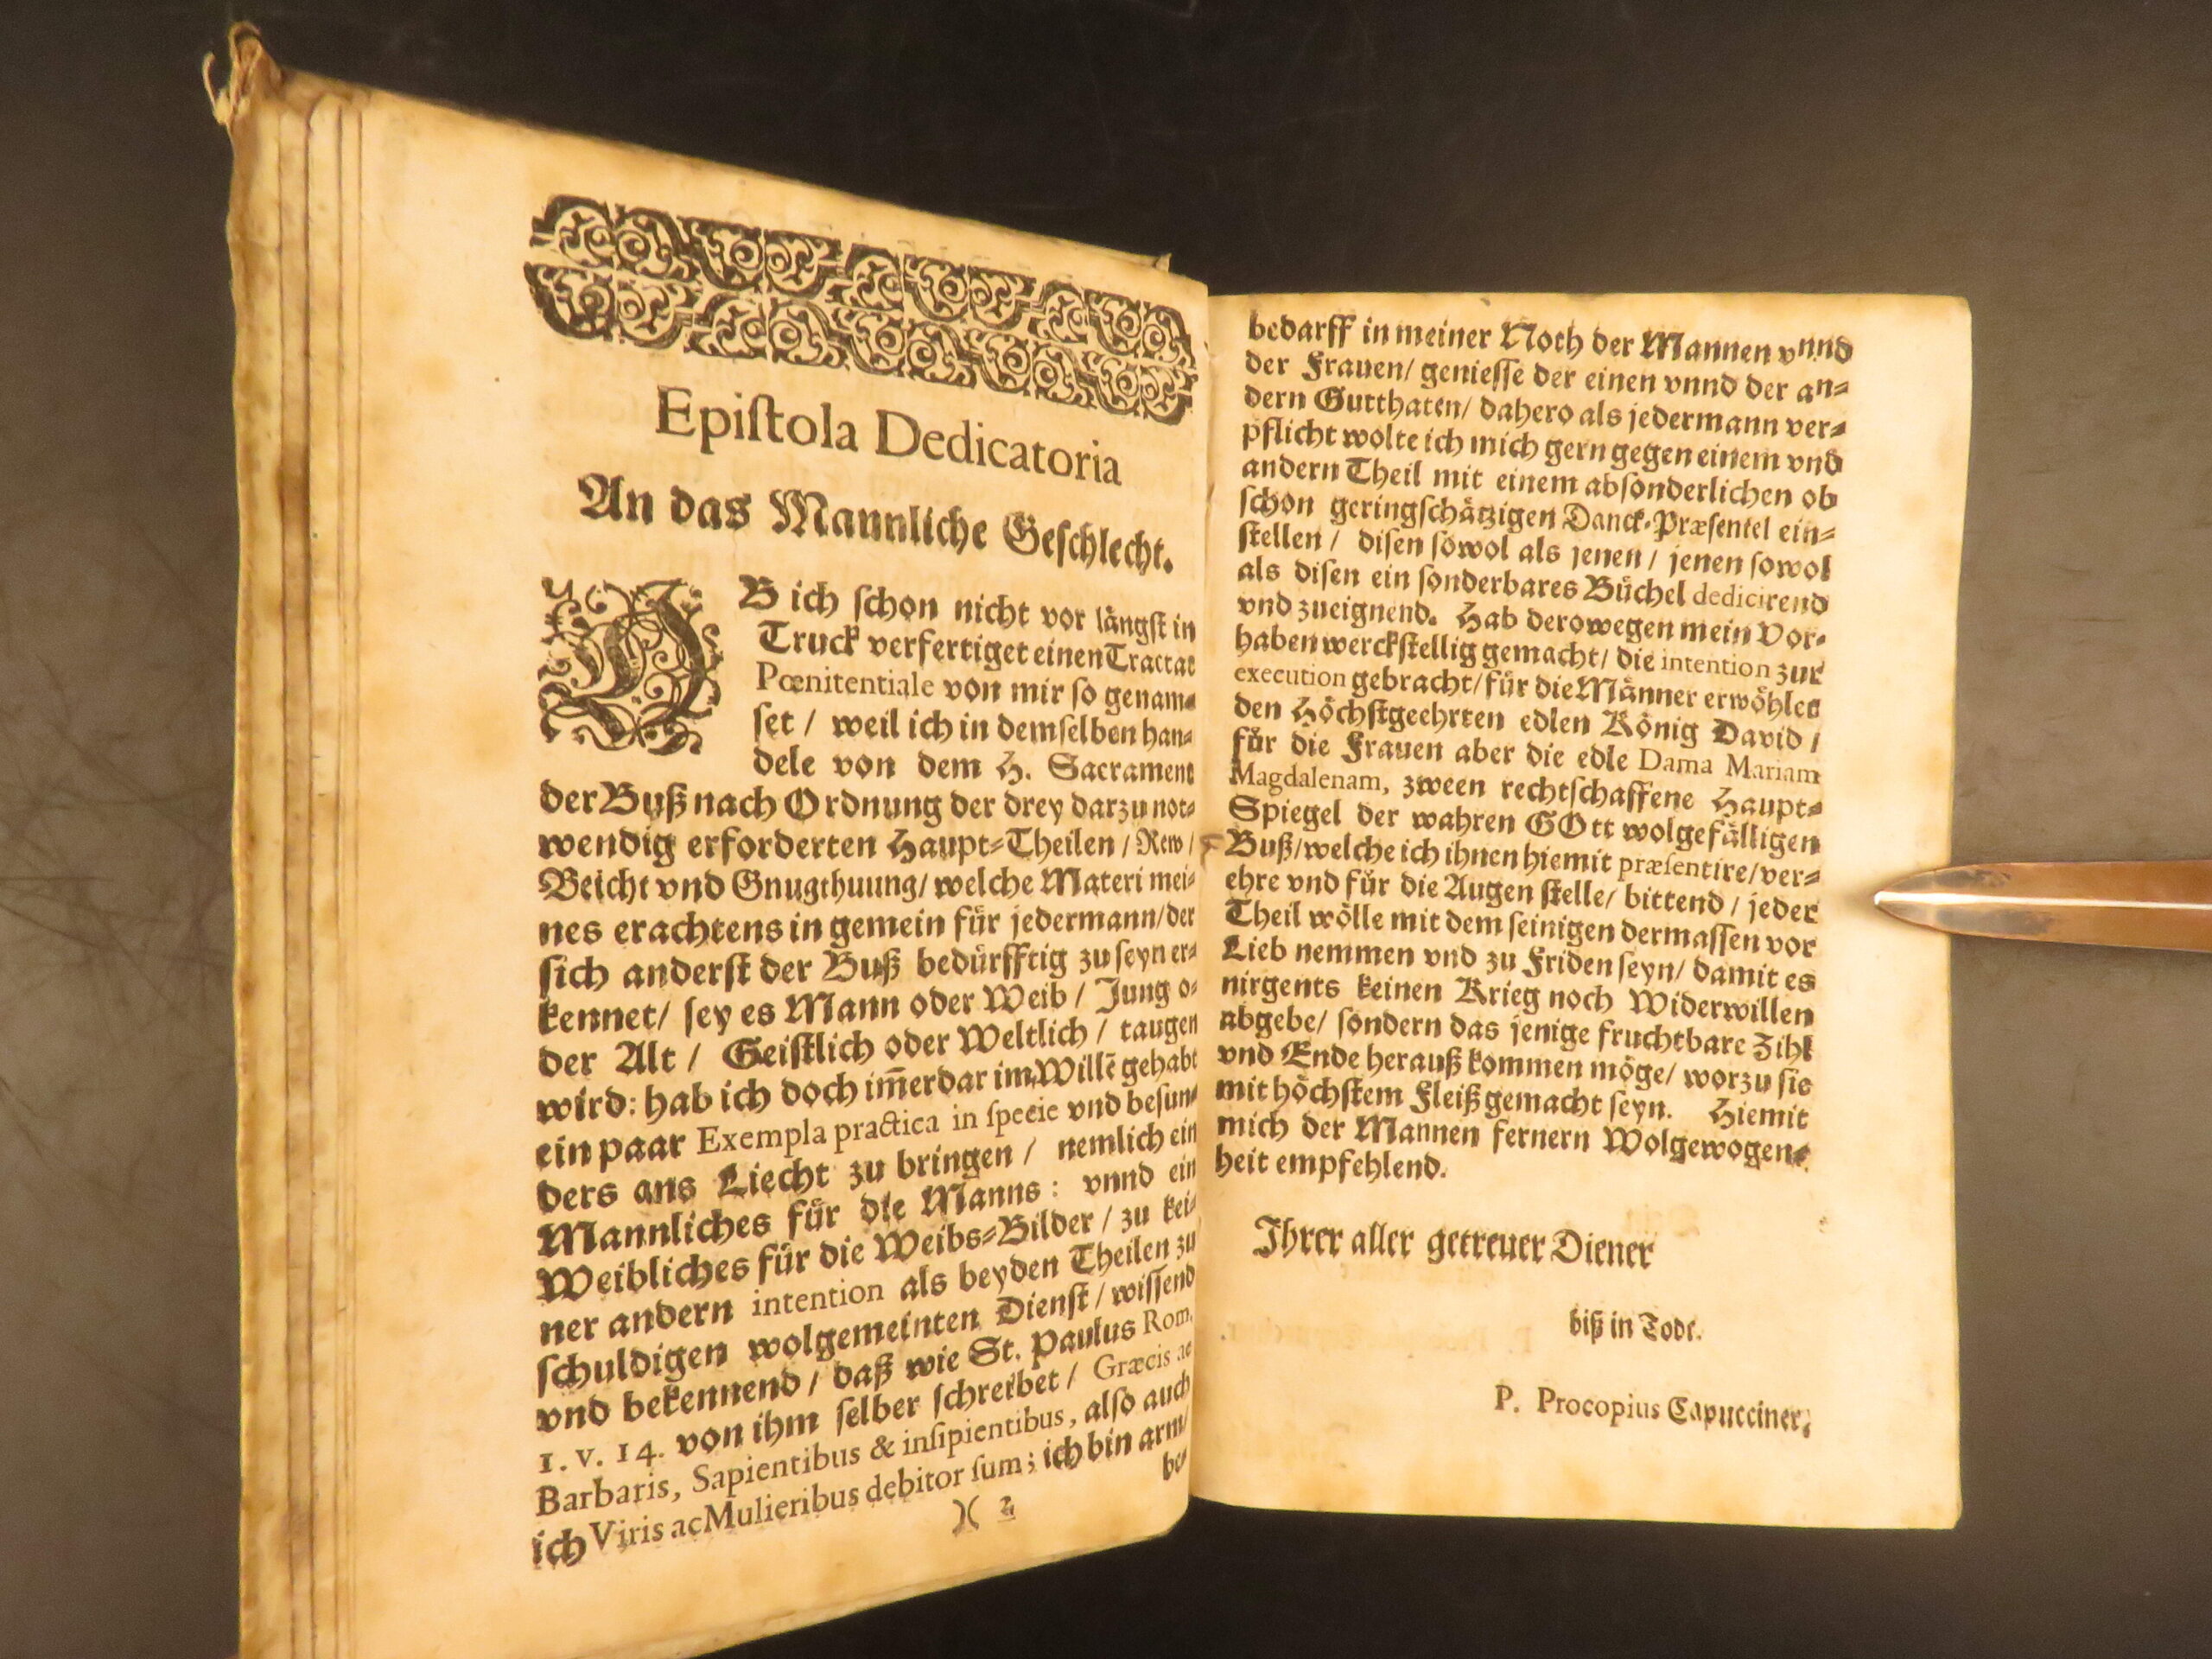 Epiſtola Dedicatoria
An das Mannliche Geſchlecht.
OB ich ſchon nicht vor längſt in
Truck verfertiget einen Tractat
Pœnitentiale von mir ſo genam⸗
ſet / weil ich in demſelben han⸗
dele von dem H. Sacrament
der Buß nach Ordnung der drey darzu not⸗
wendig erforderten Haupt⸗Theilen / Rew /
Beicht vnd Gnugthuung/ welche Materi mei⸗
nes erachtens in gemein für jedermann/der
ſich anderſt der Buß bedürfftig zu ſeyn er⸗
kennet/ ſey es Mann oder Weib / Jung o⸗
der Alt / Geiſtlich oder Weltlich / taugen
wird: hab ich doch im̄erdar im Willē gehabt
ein paar Exempla practica in ſpecie vnd beſun⸗
ders ans Liecht zu bringen / nemlich ein
Mannliches für die Manns: vnnd ein
Weibliches für die Weibs⸗Bilder / zu kei⸗
ner andern intention als beyden Theilen zu
ſchuldigen wolgemeinten Dienſt / wiſſend
vnd bekennend / daß wie St. Paulus Rom.
1. v. 14. von ihm ſelber ſchreibet / Græcis ac
Barbaris, Sapientibus & inſipientibus, alſo auch
ich Viris ac Mulieribus debitor ſum; ich bin arm/
be⸗
)( 2
bedarff in meiner Noth der Mannen vnnd
der Frauen/ genieſſe der einen vnnd der an⸗
dern Gutthaten/ dahero als jedermann ver⸗
pflicht wolte ich mich gern gegen einem vnd
andern Theil mit einem abſonderlichen ob
ſchon geringſchätzigen Danck⸗Præſentel ein⸗
ſtellen / diſen ſowol als jenen / jenen ſowol
als diſen ein ſonderbares Büchel dedicirend
vnd zueignend. Hab derowegen mein Vor⸗
haben werckſtellig gemacht/ die intention zur
execution gebracht/ für die Männer erwöhlet
den Höchſtgeehrten edlen König David /
für die Frauen aber die edle Dama Mariam
Magdalenam, zween rechtſchaffene Haupt⸗
Spiegel der wahren GOtt wolgefälligen
Buß/welche ich ihnen hiemit præſentire/ver⸗
ehre vnd für die Augen ſtelle/ bittend / jeder
Theil wölle mit dem ſeinigen dermaſſen vor
Lieb nemmen vnd zu Friden ſeyn/ damit es
nirgents keinen Krieg noch Widerwillen
abgebe/ ſondern das jenige fruchtbare Zihl
vnd Ende herauß kommen möge/ worzu ſie
mit höchſtem Fleiß gemacht ſeyn. Hiemit
mich der Mannen fernern Wolgewogen⸗
heit empfehlend.
Ihrer aller getreuer Diener
biß in Todt.
P. Procopius Capucciner.